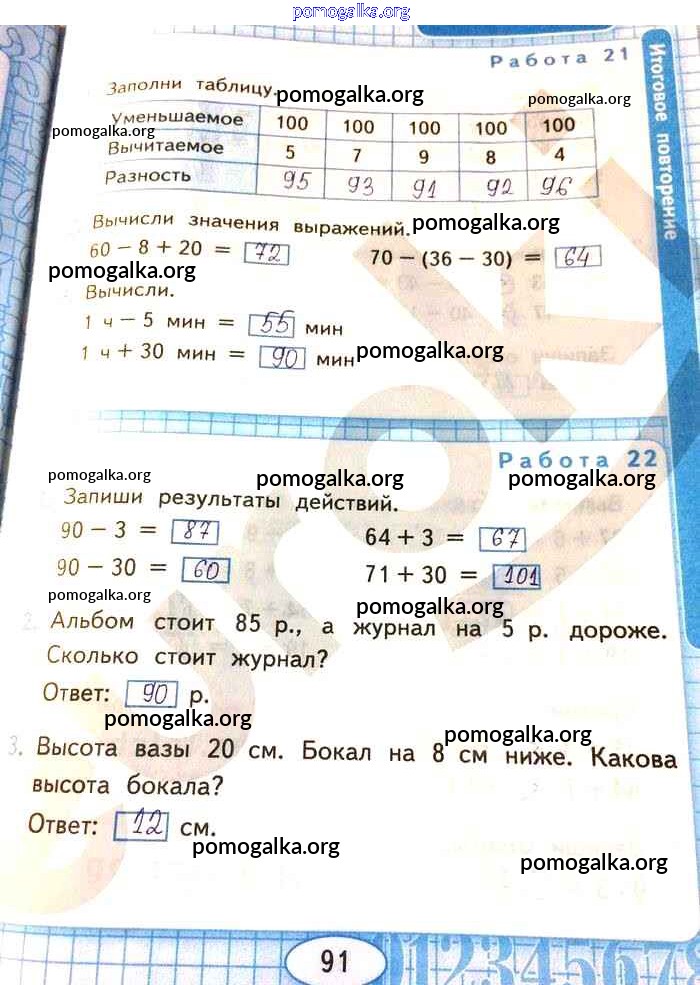 pomogalka.org
Работа 21
Итоговое повторение
Заполни таблицу.
pomogalka.org
pomogalka.org
Уменьшаемое 100 100 100 100 100
pomogalka.org
Вычитаемое 5 7 9 8 4
Разность 95 93 91 92 96
Вычисли значения выражений.
pomogalka.org
60 − 8 + 20 = 72 70 − (36 − 30) = 64
pomogalka.org
Вычисли.
1 ч − 5 мин = 55 мин
1 ч + 30 мин = 90 мин
pomogalka.org
Работа 22
pomogalka.org
pomogalka.org
pomogalka.org
Запиши результаты действий.
90 − 3 = 87 64 + 3 = 67
90 − 30 = 60 71 + 30 = 101
pomogalka.org
pomogalka.org
2. Альбом стоит 85 р., а журнал на 5 р. дороже.
Сколько стоит журнал?
Ответ: 90 р.
pomogalka.org
pomogalka.org
3. Высота вазы 20 см. Бокал на 8 см ниже. Какова
высота бокала?
Ответ: 12 см.
pomogalka.org
pomogalka.org
91
12345678